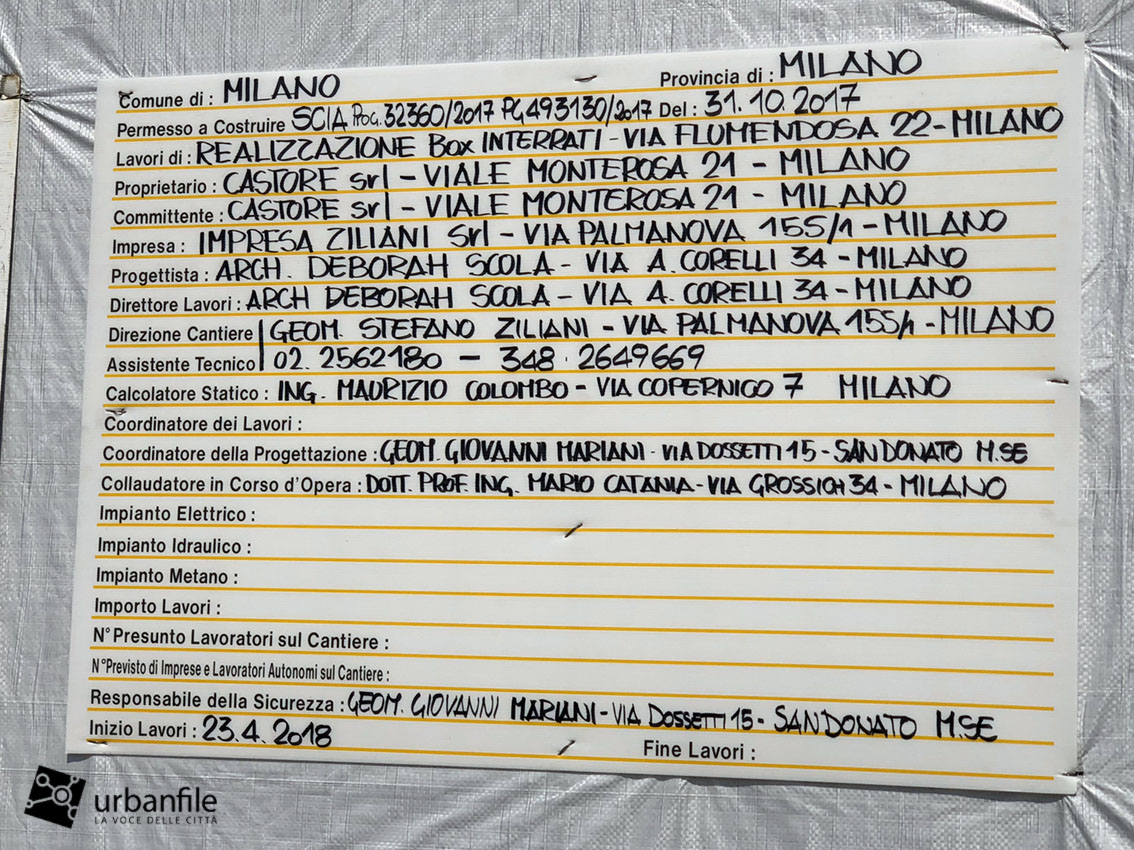 Comune di : MILANO Provincia di : MILANO
Permesso a Costruire SCIA PROG. 32360/2017 PG 493130/2017 Del : 31.10.2017
Lavori di : REALIZZAZIONE Box INTERRATI - VIA FLUMENDOSA 22 - MILANO
Proprietario : CASTORE srl - VIALE MONTEROSA 21 - MILANO
Committente : CASTORE srl - VIALE MONTEROSA 21 - MILANO
Impresa : IMPRESA ZILIANI Srl - VIA PALMANOVA 155/1 - MILANO
Progettista : ARCH. DEBORAH SCOLA - VIA A. CORELLI 34 - MILANO
Direttore Lavori : ARCH DEBORAH SCOLA - VIA A. CORELLI 34 - MILANO
Direzione Cantiere GEOM. STEFANO ZILIANI - VIA PALMANOVA 155/1 - MILANO
Assistente Tecnico 02. 2562180 - 348 . 2649669
Calcolatore Statico : ING. MAURIZIO COLOMBO - VIA COPERNICO 7 MILANO
Coordinatore dei Lavori :
Coordinatore della Progettazione : GEOM. GIOVANNI MARIANI - VIA DOSSETTI 15 - SAN DONATO M.SE
Collaudatore in Corso d'Opera : DOTT. PROF. ING. MARIO CATANIA - VIA GROSSICH 34 - MILANO
Impianto Elettrico :
Impianto Idraulico :
Impianto Metano :
Importo Lavori :
N° Presunto Lavoratori sul Cantiere :
N° Previsto di Imprese e Lavoratori Autonomi sul Cantiere :
Responsabile della Sicurezza : GEOM. GIOVANNI MARIANI - VIA DOSSETTI 15 - SAN DONATO M.SE
Inizio Lavori : 23.4.2018 Fine Lavori :
urbanfile
LA VOCE DELLE CITTÀ